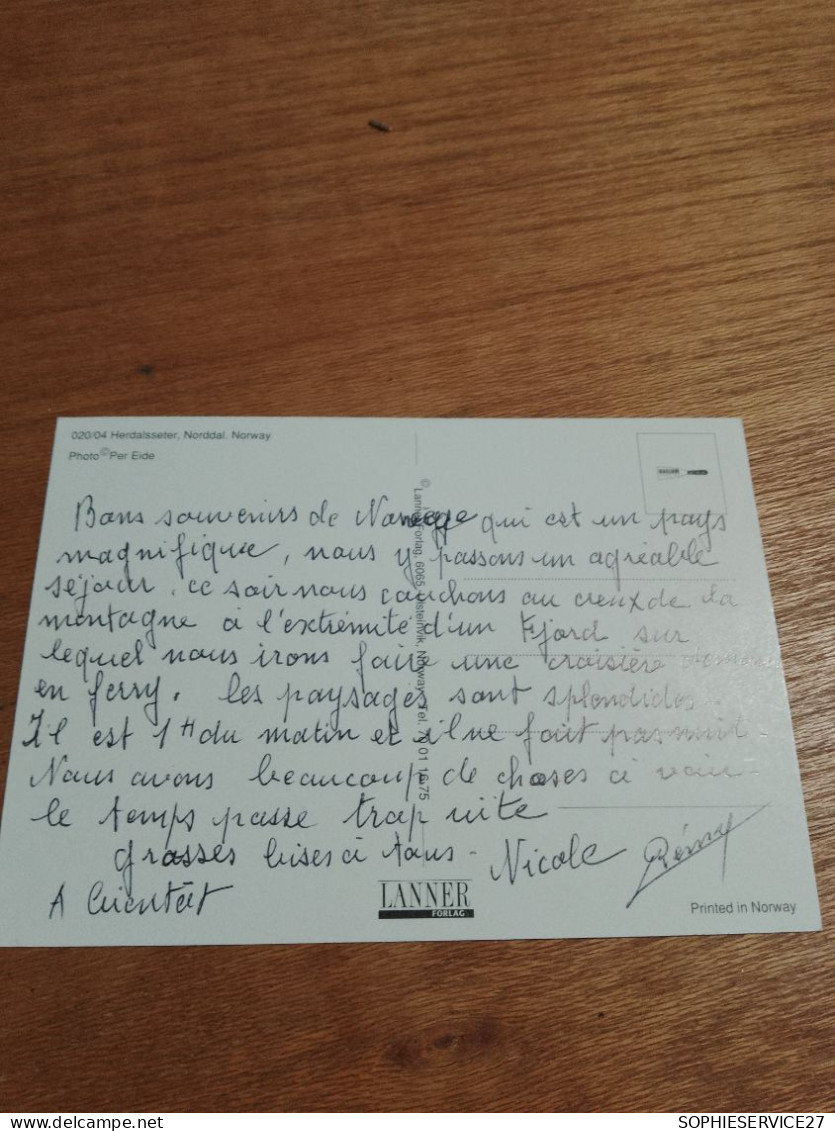 020/04 Herdalsseter, Norddal. Norway
Photo © Per Eide
Bons souvenirs de Norvège qui est un pays
magnifique, nous y passons un agréable
séjour. ce soir nous couchons au creux de la
montagne à l'extrémité d'un Fjord sur
lequel nous irons faire une croisière
en ferry. les paysages sont splendides.
Il est 1H du matin et il ne fait pas nuit
Nous avons beaucoup de choses à voir
le temps passe trop vite
grosses bises à tous - Nicole Rémy
A bientôt
© Lanner Forlag, 6065 Ulsteinvik, Norway. Tel. 70 01 75
LANNER
FORLAG
Printed in Norway
SOPHIESERVICE27